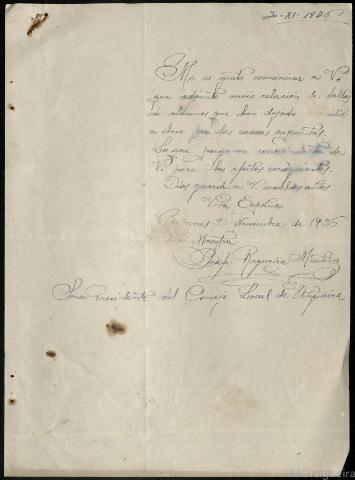 30-XI-1936
Me es grato comunicar a V.
que adjunto envío relación de faltas
de alumnos que han dejado de asistir
a clase por las causas
Lo que pongo en conocimiento de
V. para los efectos consiguientes.
Dios guarde a V. muchos años
Viva España
30 Noviembre de 1936
Maestra
Regueira
Señor Presidente del Consejo Local de Ortigueira